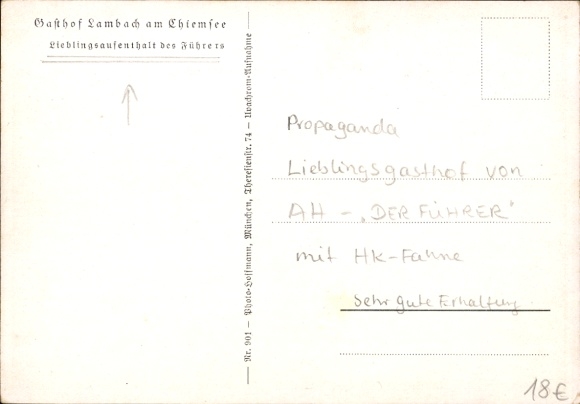 Gasthof Lambach am Chiemsee
Lieblingsaufenthalt des Führers
Nr. 901 – Photo-Hoffmann, München, Theresienstr. 74 – Uvachrom-Aufnahme
Propaganda
Lieblingsgasthof von
AH – „DER FÜHRER"
mit HK-Fahne
Sehr gute Erhaltung
18€